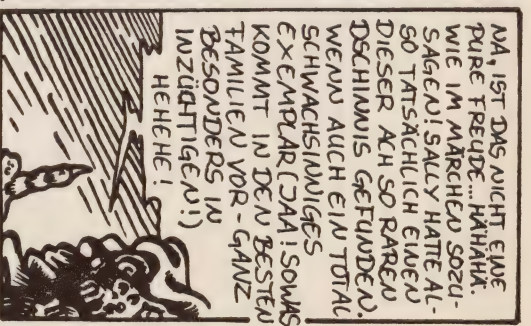 NA, IST DAS NICHT EINE
PURE FREUDE... HÄHÄHÄ.
WIE IM MÄRCHEN SOZU-
SAGEN! SALLY HATTE AL-
SO TATSÄCHLICH EINEN
DIESER ACH SO RAREN
DSCHINNIS GEFUNDEN.
WENN AUCH EIN TOTAL
SCHWACHSINNIGES
EXEMPLAR (JAA! SOWAS
KOMMT IN DEN BESTEN
FAMILIEN VOR - GANZ
BESONDERS IN
INZÜCHTIGEN!)
HEHEHE!